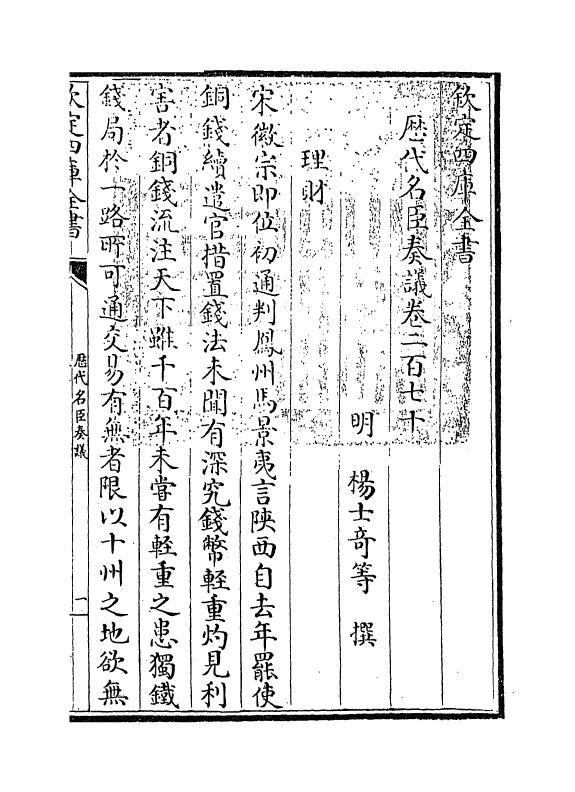 欽定四庫全書
歷代名臣奏議卷二百七十
明　楊士奇等　撰
理財
宋徽宗即位初通判鳳州馬景夷言陝西自去年罷使
銅錢續遣官措置錢法未聞有深究錢幣輕重灼見利
害者銅錢流注天下雖千百年未嘗有輕重之患獨鐵
錢局於一路所可通交易有無者限以十州之地欲無
欽定四庫全書
歷代名臣奏議
一